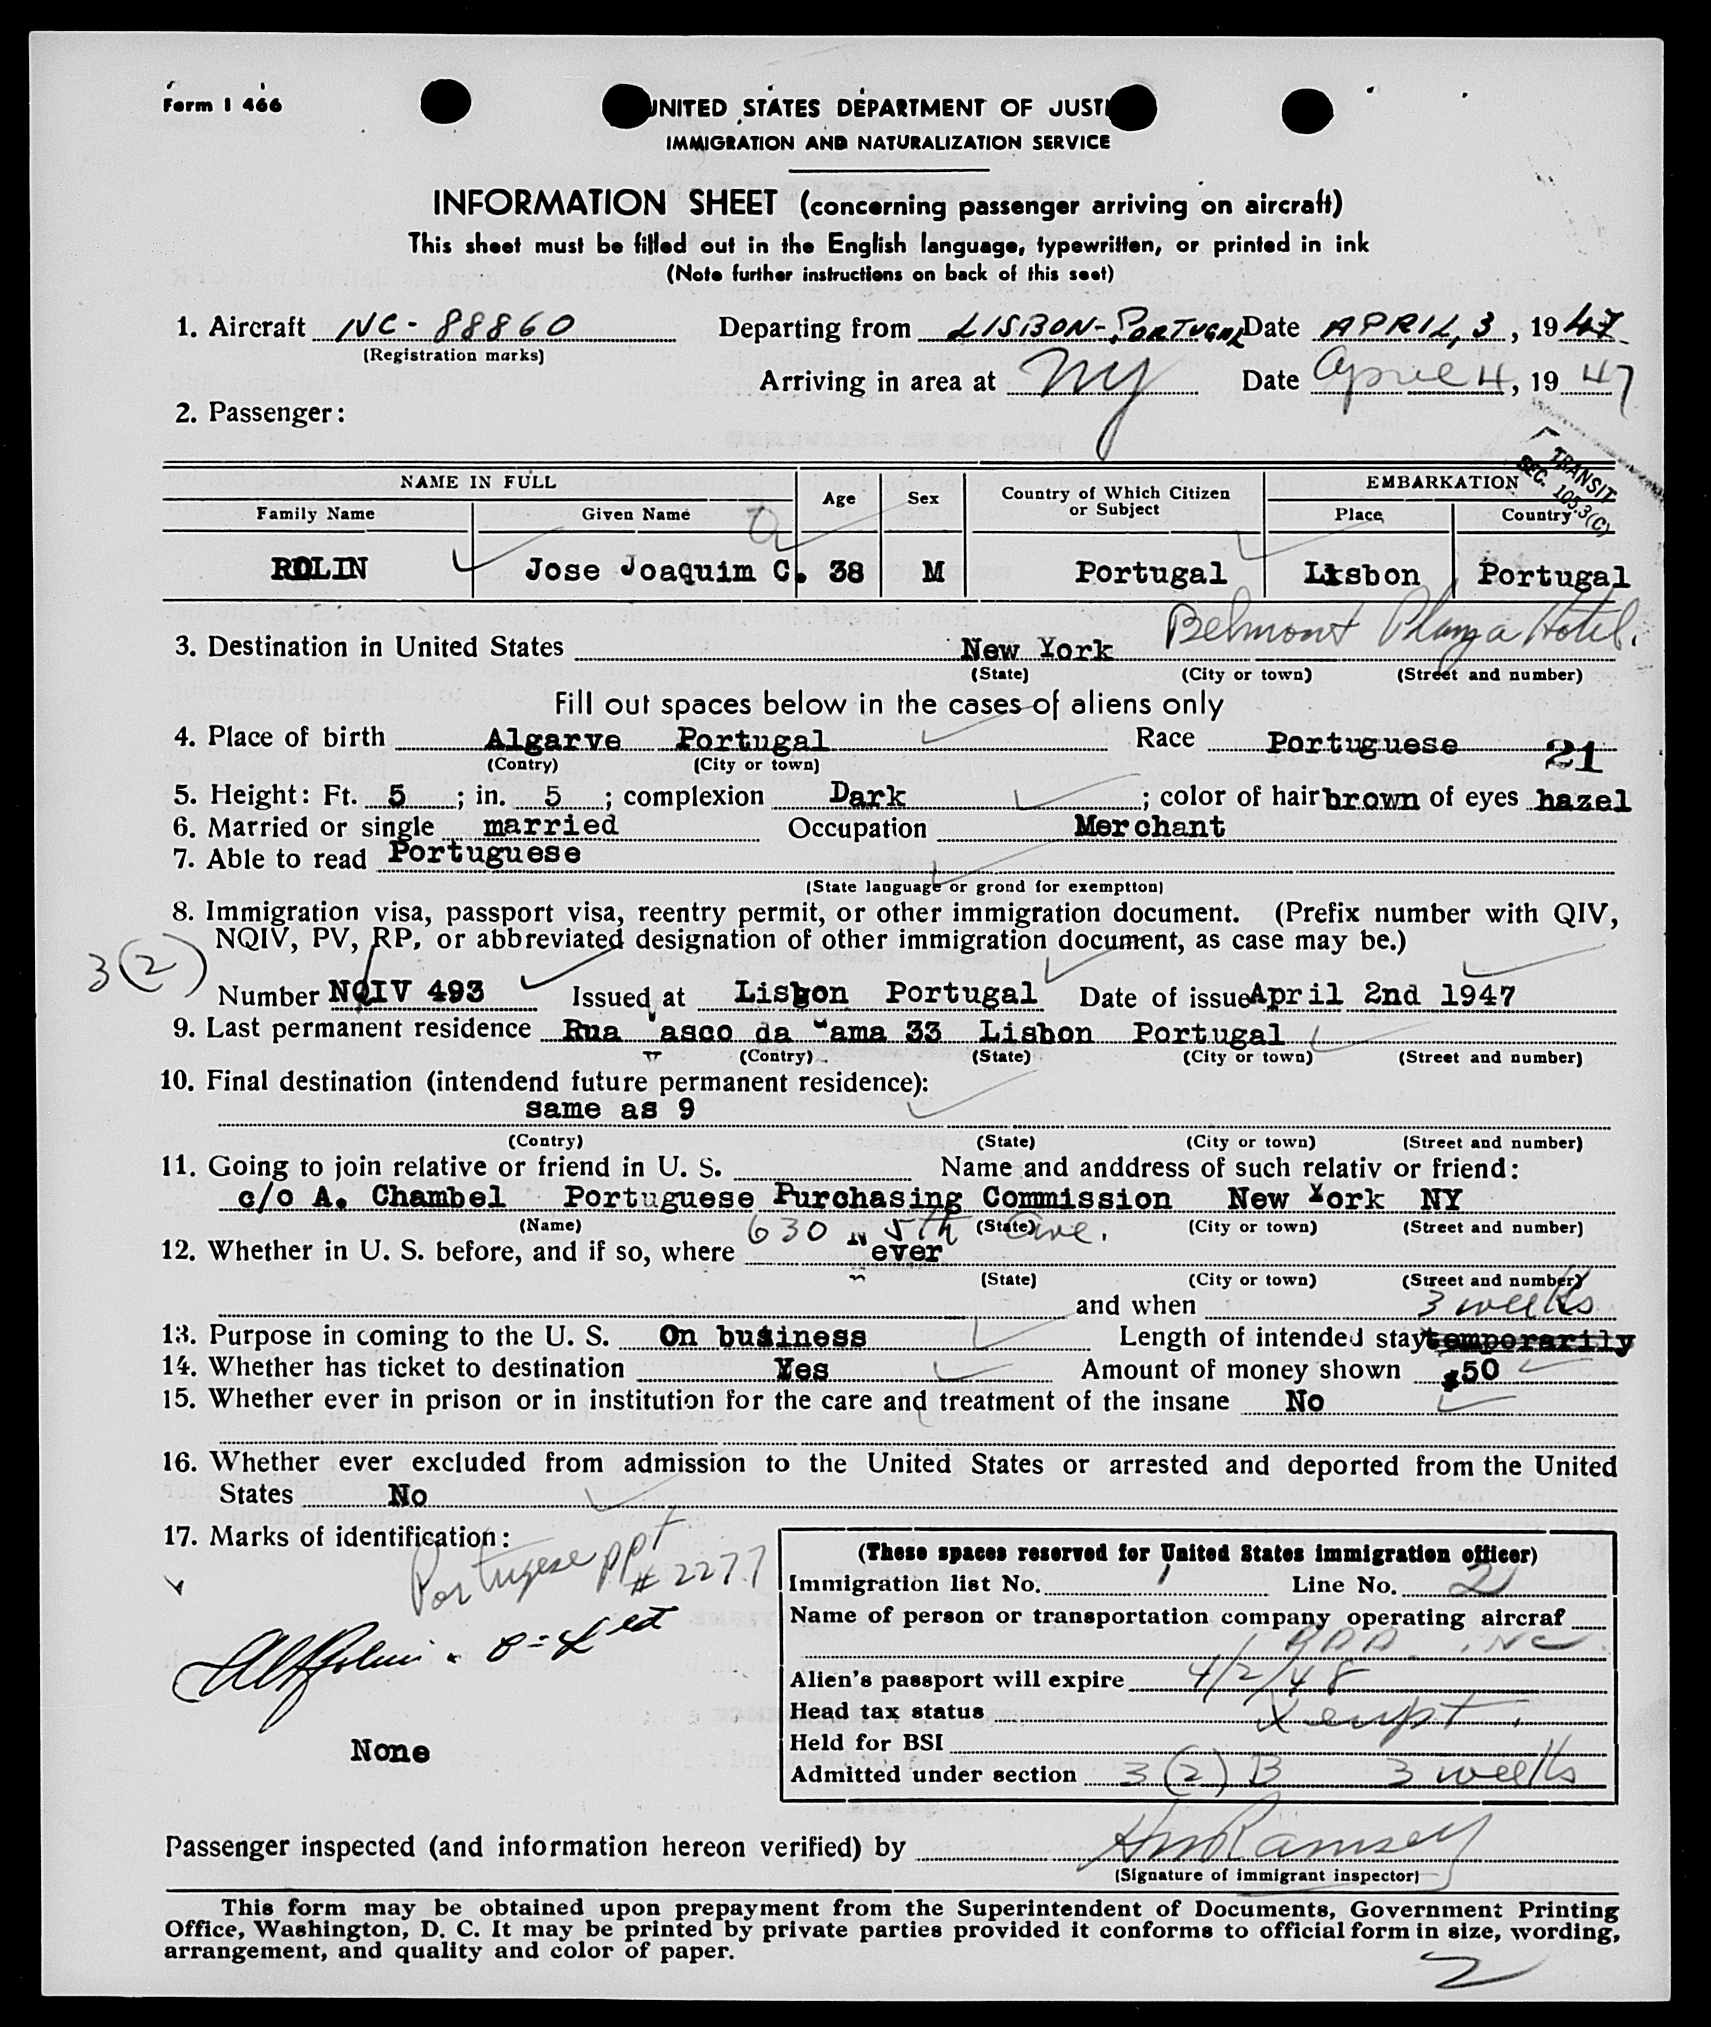 Form I 466
UNITED STATES DEPARTMENT OF JUSTI
IMMIGRATION AND NATURALIZATION SERVICE
INFORMATION SHEET (concerning passenger arriving on aircraft)
This sheet must be filled out in the English language, typewritten, or printed in ink
(Note further instructions on back of this seet)
1. Aircraft NC - 88860 Departing from LISBON - PORTUGAL Date APRIL, 3, 1947
(Registration marks)
Arriving in area at NY Date April 4, 1947
2. Passenger:
TRANSIT
SEC. 105.3(C)
NAME IN FULL Age Sex Country of Which Citizen or Subject EMBARKATION
Family Name Given Name Place Country
ROLIN Jose Joaquim C. 38 M Portugal Lisbon Portugal
Belmont Plaza Hotel.
3. Destination in United States New York
(State) (City or town) (Street and number)
Fill out spaces below in the cases of aliens only
4. Place of birth Algarve Portugal Race Portuguese 21
(Contry) (City or town)
5. Height: Ft. 5; in. 5; complexion Dark; color of hair brown of eyes hazel
6. Married or single married Occupation Merchant
7. Able to read Portuguese
(State language or grond for exemptton)
8. Immigration visa, passport visa, reentry permit, or other immigration document. (Prefix number with QIV,
NQIV, PV, RP, or abbreviated designation of other immigration document, as case may be.)
3(2)
Number NQIV 493 Issued at Lisbon Portugal Date of issue April 2nd 1947
9. Last permanent residence Rua Vasco da Gama 33 Lisbon Portugal
(Contry) (State) (City or town) (Street and number)
10. Final destination (intendend future permanent residence):
same as 9
(Contry) (State) (City or town) (Street and number)
11. Going to join relative or friend in U. S. Name and anddress of such relativ or friend:
c/o A. Chambel Portuguese Purchasing Commission New York NY
(Name) (State) (City or town) (Street and number)
630 5th Ave.
12. Whether in U. S. before, and if so, where Never
(State) (City or town) (Street and number)
and when
3 weeks
13. Purpose in coming to the U. S. On business Length of intended stay temporarily
14. Whether has ticket to destination Yes Amount of money shown $50
15. Whether ever in prison or in institution for the care and treatment of the insane No
16. Whether ever excluded from admission to the United States or arrested and deported from the United
States No
17. Marks of identification:
Portugese ppt
# 2277
None
(These spaces reserved for United States immigration officer)
Immigration list No. 1 Line No. 2
Name of person or transportation company operating aircraf
INC
Alien's passport will expire 4/2/48
Head tax status Xempt.
Held for BSI
Admitted under section 3(2) B 3 weeks
Passenger inspected (and information hereon verified) by HmRamsey
(Signature of immigrant inspector)
This form may be obtained upon prepayment from the Superintendent of Documents, Government Printing
Office, Washington, D. C. It may be printed by private parties provided it conforms to official form in size, wording,
arrangement, and quality and color of paper.
2